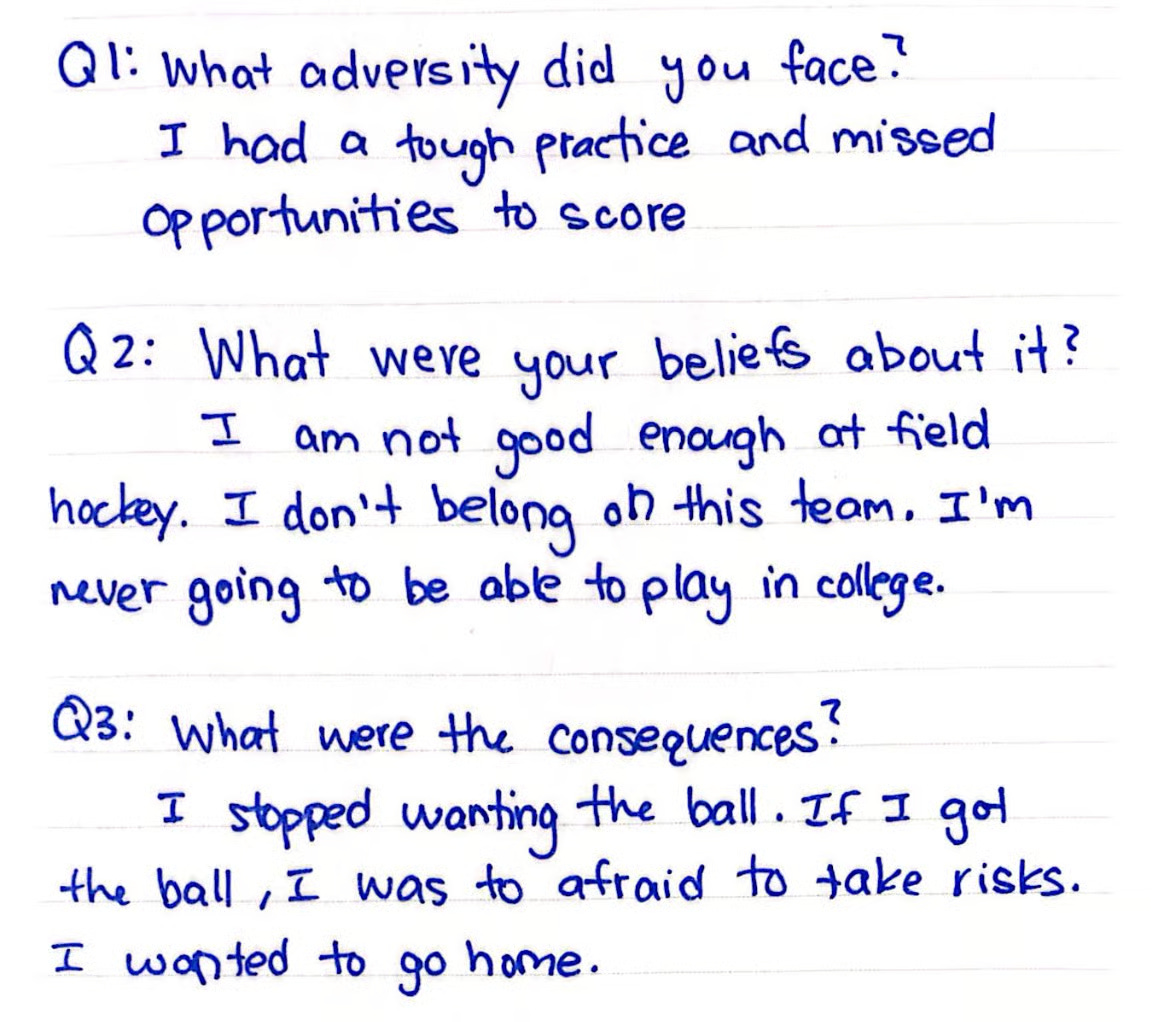 Q1: What adversity did you face?
I had a tough practice and missed
opportunities to score
Q2: What were your beliefs about it?
I am not good enough at field
hockey. I don't belong on this team. I'm
never going to be able to play in college.
Q3: What were the consequences?
I stopped wanting the ball. If I got
the ball, I was to afraid to take risks.
I wanted to go home.